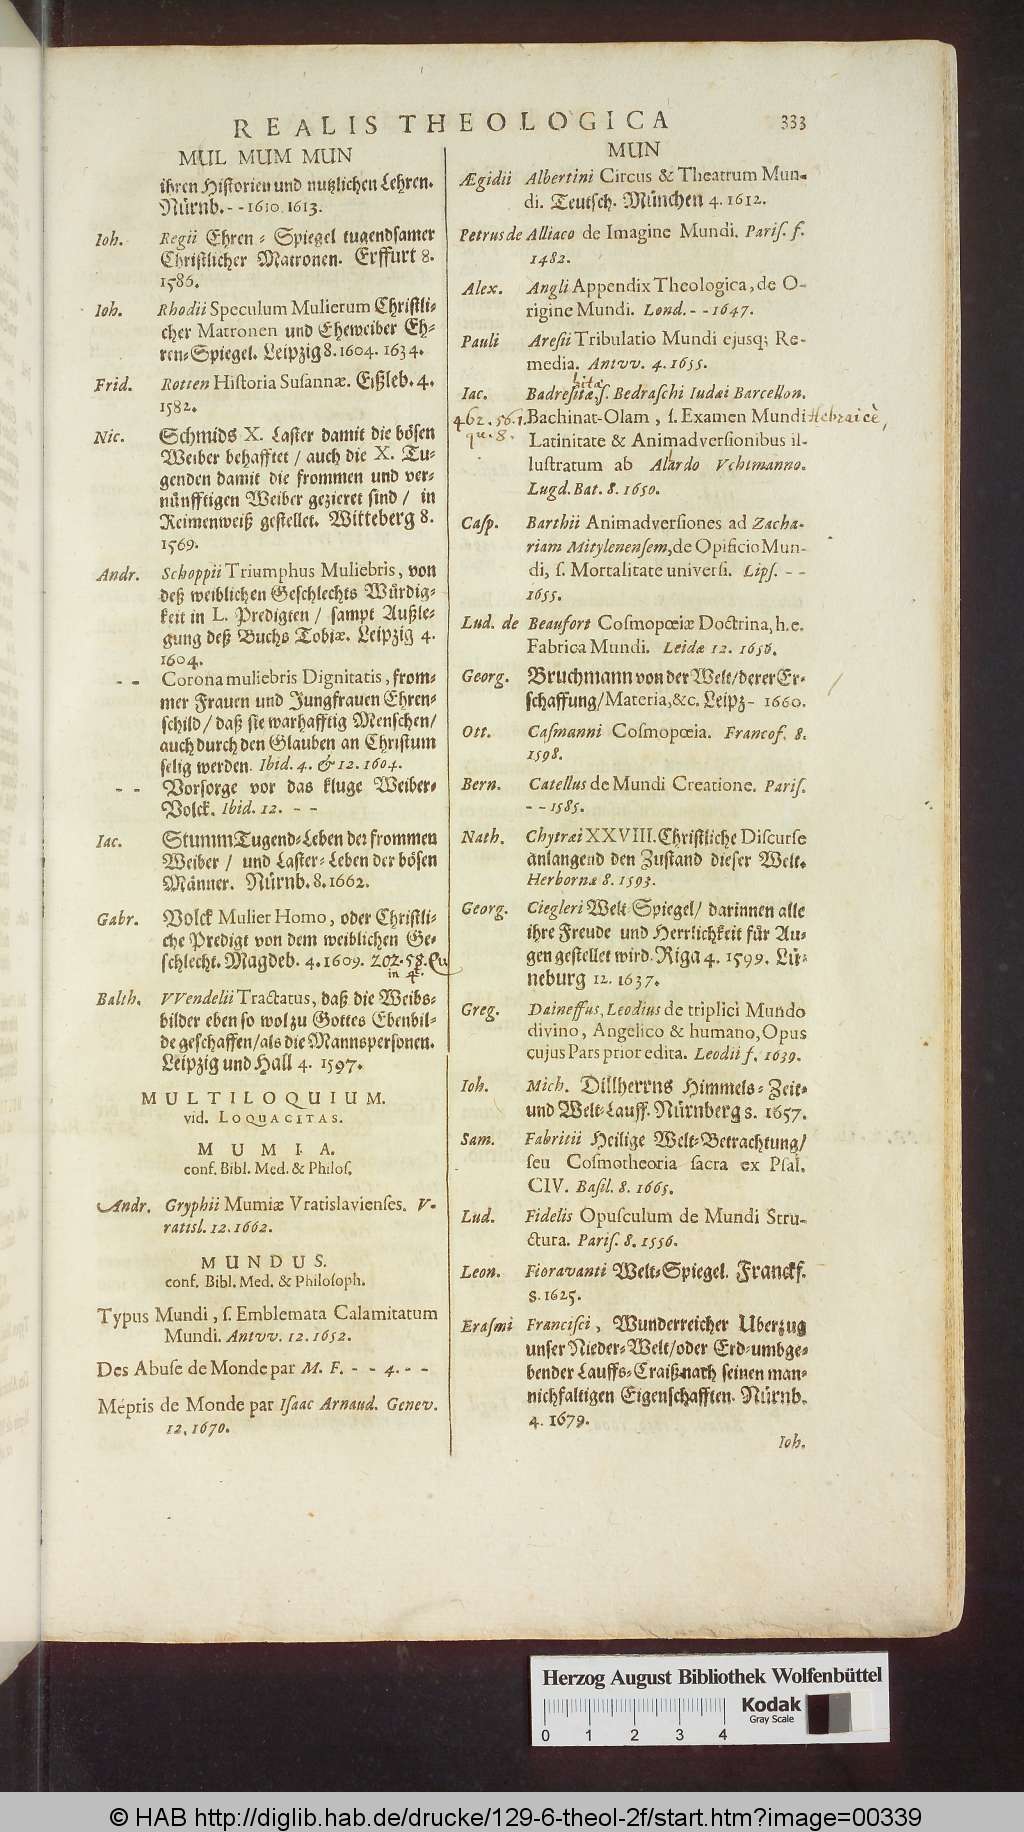 REALIS THEOLOGICA 333
MUL MUM MUN
ihren Historien und nutzlichen Lehren.
Nürnb. - - 1610. 1613.
Ioh. Regii Ehren-Spiegel tugendsamer
Christlicher Matronen. Erffurt 8.
1586.
Ioh. Rhodii Speculum Mulierum Christli-
cher Matronen und Eheweiber Eh-
ren-Spiegel. Leipzig 8. 1604. 1634.
Frid. Rotten Historia Susannæ. Eißleb. 4.
1582.
Nic. Schmids X. Laster damit die bösen
Weiber behafftet / auch die X. Tu-
genden damit die frommen und ver-
nünfftigen Weiber gezieret sind / in
Reimenweiß gestellet. Witteberg 8.
1569.
Andr. Schoppii Triumphus Muliebris, von
deß weiblichen Geschlechts Würdig-
keit in L. Predigten / sampt Außle-
gung deß Buchs Tobiæ. Leipzig 4.
1604.
- - Corona muliebris Dignitatis, from-
mer Frauen und Jungfrauen Ehren-
schild / daß sie warhafftig Menschen /
auch durch den Glauben an Christum
selig werden. Ibid. 4. & 12. 1604.
- - Vorsorge vor das kluge Weiber-
Volck. Ibid. 12. - -
Iac. Stumm Tugend-Leben der frommen
Weiber / und Laster-Leben der bösen
Männer. Nürnb. 8. 1662.
Gabr. Volck Mulier Homo, oder Christli-
che Predigt von dem weiblichen Ge-
schlecht. Magdeb. 4. 1609. 202. 58. Qu
in 4t.
Balth. VVendelii Tractatus, daß die Weibs-
bilder eben so wol zu Gottes Ebenbil-
de geschaffen / als die Mannspersonen.
Leipzig und Hall 4. 1597.
MULTILOQUIUM.
vid. LOQUACITAS.
MUMIA.
conf. Bibl. Med. & Philos.
Andr. Gryphii Mumiæ Vratislavienses. V-
ratisl. 12. 1662.
MUNDUS.
conf. Bibl. Med. & Philosoph.
Typus Mundi, s. Emblemata Calamitatum
Mundi. Antvv. 12. 1652.
Des Abuse de Monde par M. F. - - 4. - -
Mépris de Monde par Isaac Arnaud. Genev.
12. 1670.
MUN
Ægidii Albertini Circus & Theatrum Mun-
di. Teutsch. München 4. 1612.
Petrus de Alliaco de Imagine Mundi. Paris. f.
1482.
Alex. Angli Appendix Theologica, de O-
rigine Mundi. Lond. - - 1647.
Pauli Aresii Tribulatio Mundi ejusq; Re-
media. Antvv. 4. 1655.
bitæ
Iac. Badresitæ, s. Bedraschi Iudæi Barcellon.
462. 56. 1. Bachinat-Olam, s. Examen Mundi Hebraicè,
qu. 8. Latinitate & Animadversionibus il-
lustratum ab Alardo Vchtmanno.
Lugd. Bat. 8. 1650.
Casp. Barthii Animadversiones ad Zacha-
riam Mitylenensem, de Opificio Mun-
di, s. Mortalitate universi. Lips. - -
1655.
Lud. de Beaufort Cosmopœiæ Doctrina, h. e.
Fabrica Mundi. Leidæ 12. 1656.
Georg. Bruchmann von der Welt / derer Er-
schaffung / Materia, &c. Leipz - 1660.
Ott. Casmanni Cosmopœia. Francof. 8.
1598.
Bern. Catellus de Mundi Creatione. Paris.
- - 1585.
Nath. Chytræi XXVIII. Christliche Discurse
anlangend den Zustand dieser Welt.
Herbornæ 8. 1593.
Georg. Ciegleri Welt Spiegel / darinnen alle
ihre Freude und Herrlichkeit für Au-
gen gestellet wird. Riga 4. 1599. Lü-
neburg 12. 1637.
Greg. Daineffus, Leodius de triplici Mundo
divino, Angelico & humano, Opus
cujus Pars prior edita. Leodii f. 1639.
Ioh. Mich. Dillherrns Himmels-Zeit-
und Welt-Lauff. Nürnberg 8. 1657.
Sam. Fabritii Heilige Welt-Betrachtung /
seu Cosmotheoria sacra ex Psal.
CIV. Basil. 8. 1665.
Lud. Fidelis Opusculum de Mundi Stru-
ctura. Paris. 8. 1556.
Leon. Fioravanti Welt-Spiegel. Franckf.
8. 1625.
Erasmi Francisci, Wunderreicher Uberzug
unser Nieder-Welt / oder Erd-umbge-
bender Lauffs-Craiß nach seinen man-
nichfaltigen Eigenschafften. Nürnb.
4. 1679.
Ioh.
Herzog August Bibliothek Wolfenbüttel
Kodak
Gray Scale
0 1 2 3 4
© HAB http://diglib.hab.de/drucke/129-6-theol-2f/start.htm?image=00339